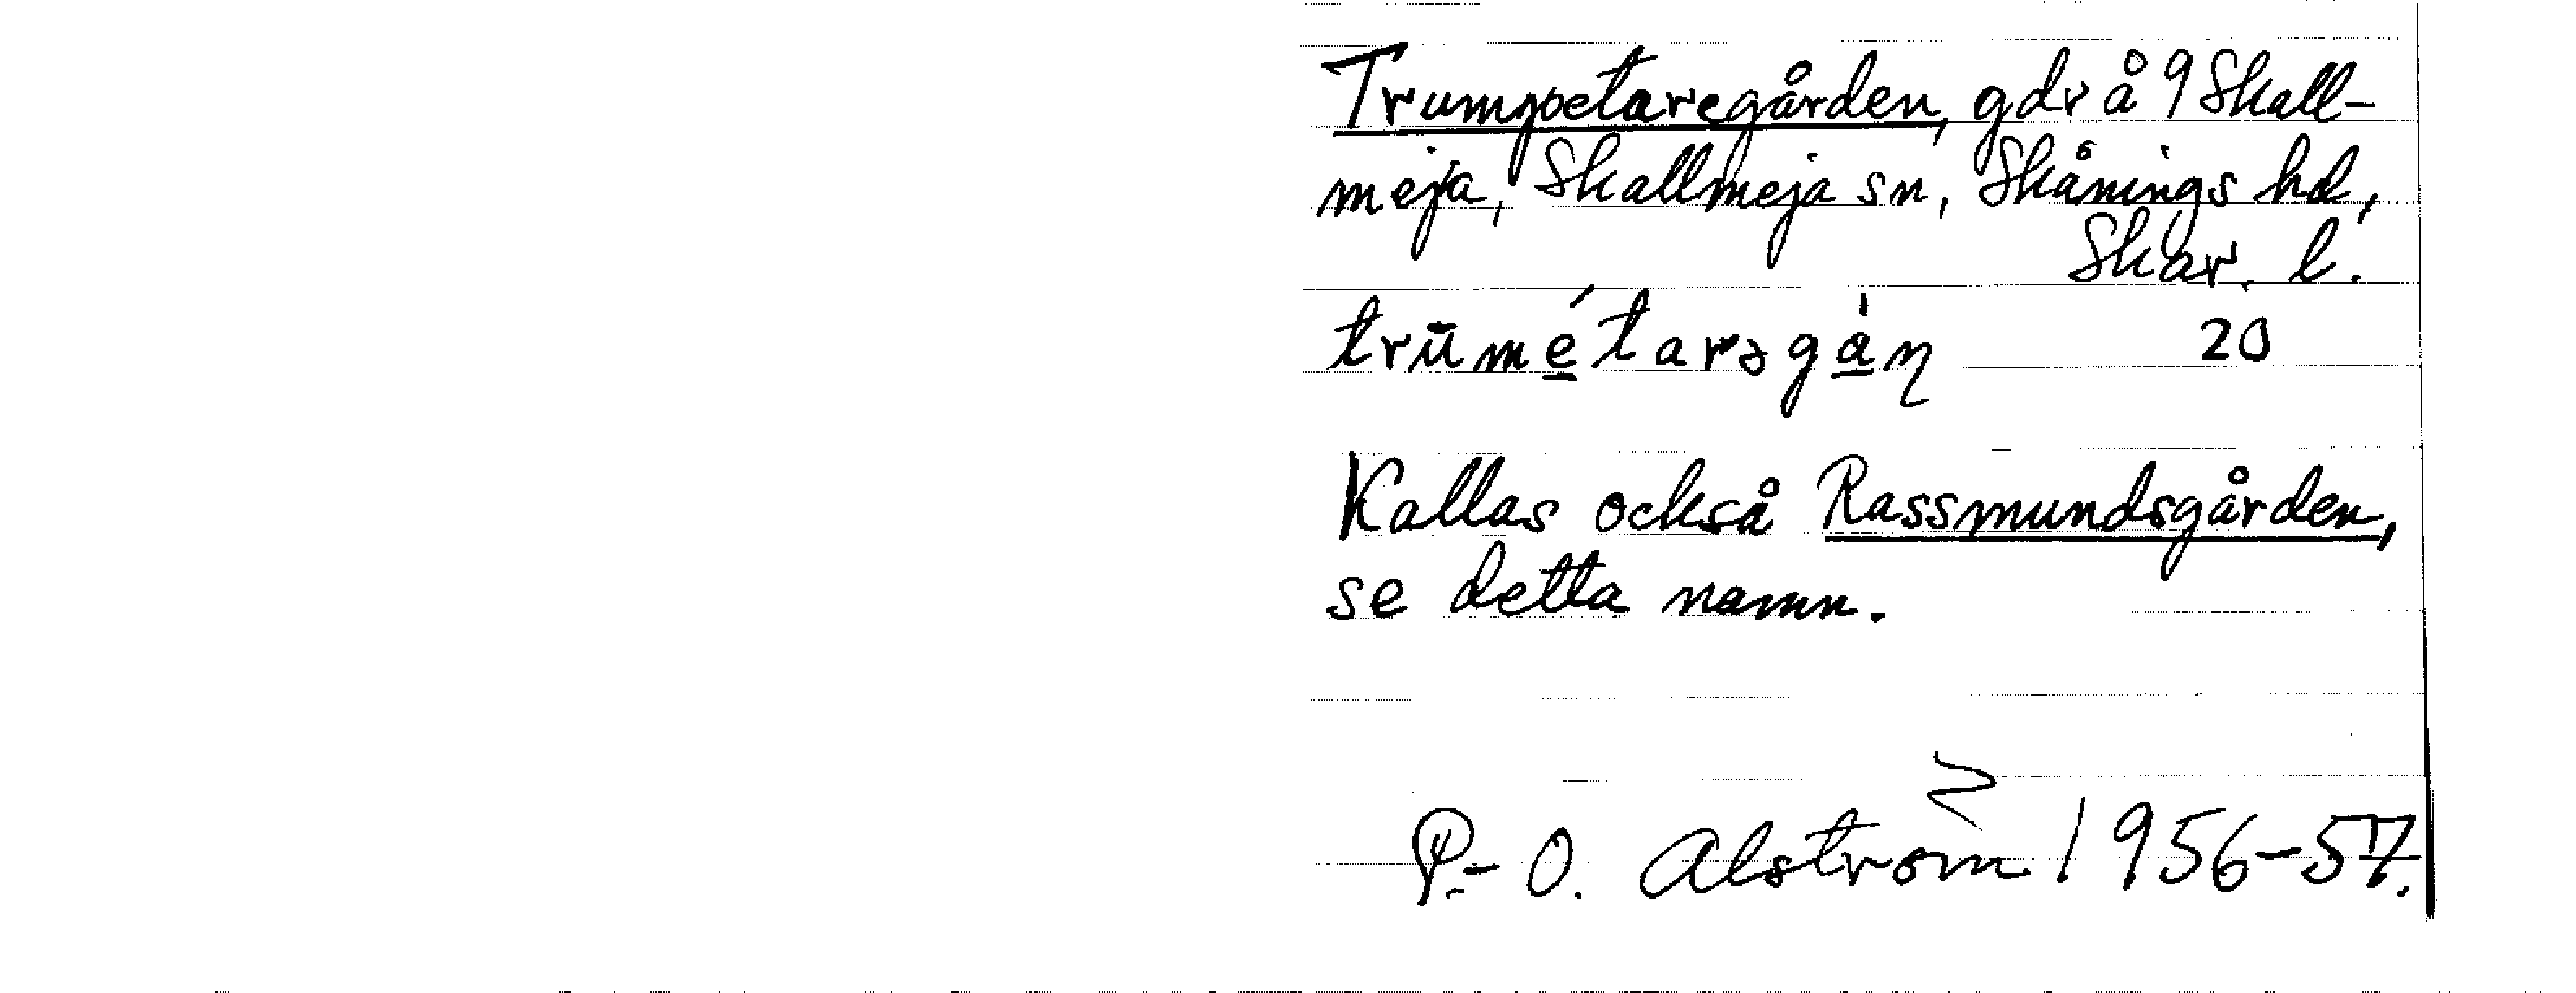 Trumpetaregården, gdr å 9 Skall-
meja, Skallmeja sn, Skånings hd,
Skar. l.
trūmétarəgàn̥ 20
Kallas också Rassmundsgården,
se detta namn.
P.-O. Alström 1956-57.